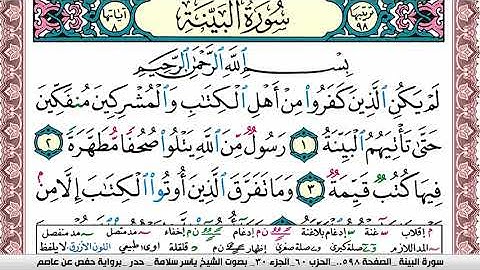 ترتيبها ٩٨ سُورَةُ الْبَيِّنَةِ آياتها ٨
بِسْمِ ٱللَّهِ ٱلرَّحْمَٰنِ ٱلرَّحِيمِ
لَمْ يَكُنِ ٱلَّذِينَ كَفَرُوا۟ مِنْ أَهْلِ ٱلْكِتَٰبِ وَٱلْمُشْرِكِينَ مُنفَكِّينَ
حَتَّىٰ تَأْتِيَهُمُ ٱلْبَيِّنَةُ ١ رَسُولٌ مِّنَ ٱللَّهِ يَتْلُوا۟ صُحُفًا مُّطَهَّرَةً ٢
فِيهَا كُتُبٌ قَيِّمَةٌ ٣ وَمَا تَفَرَّقَ ٱلَّذِينَ أُوتُوا۟ ٱلْكِتَٰبَ إِلَّا مِنۢ
م إقلاب غنة إدغام بلاغنة إدغام إخفاء مد متصل مد منفصل
المد اللازم صلة كبرى صلة صغرى إظهار قلقلة لا يلفظ
سورة البينة _ الصفحة ٥٩٨ _ الحزب ٦٠ _ الجزء ٣٠ _ بصوت الشيخ ياسر سلامة _ حدر _ برواية حفص عن عاصم